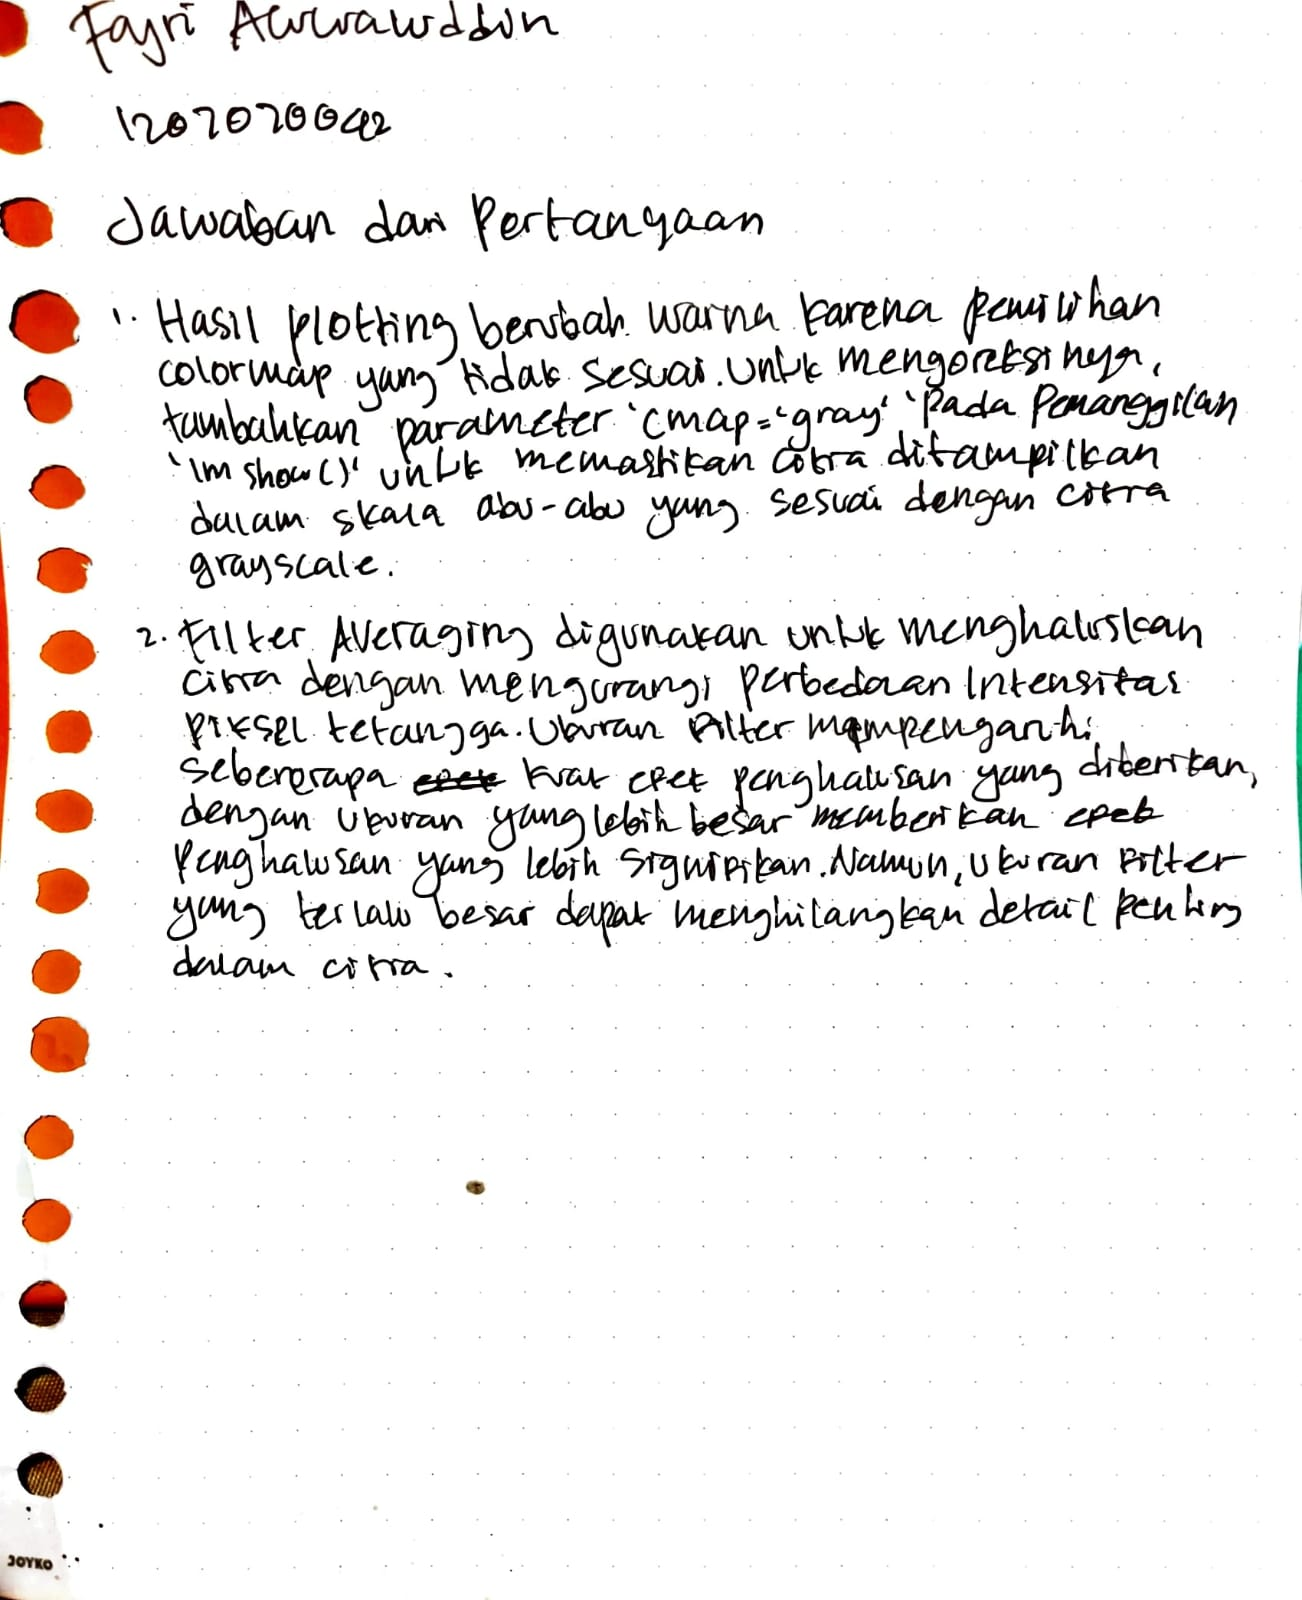 Fajri Awwawddin
1207070042
Jawaban dari Pertanyaan
1. Hasil plotting berubah warna karena pemilihan
colormap yang tidak sesuai. Untuk mengoreksinya,
tambahkan parameter 'cmap='gray' 'pada pemanggilan
'imshow()' untuk memastikan citra ditampilkan
dalam skala abu-abu yang sesuai dengan citra
grayscale.
2. Filter Averaging digunakan untuk menghaluskan
citra dengan mengurangi perbedaan intensitas
piksel tetangga. Ukuran filter mempengaruhi
sebererapa kuat epek penghalusan yang diberikan,
dengan ukuran yang lebih besar memberikan epek
penghalusan yang lebih signifikan. Namun, ukuran filter
yang terlalu besar dapat menghilangkan detail penting
dalam citra.
JOYKO